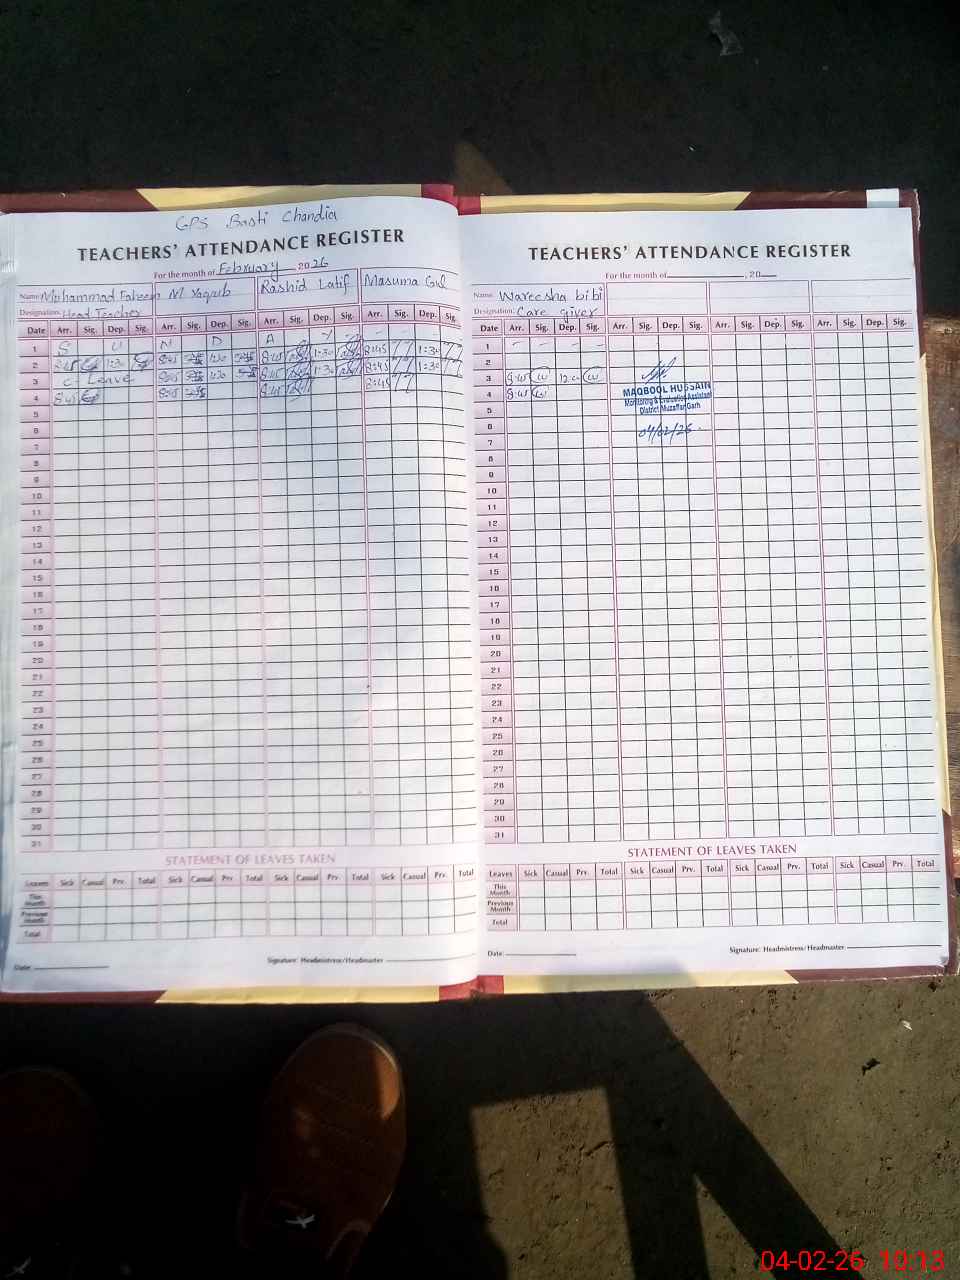 GPS Basti Chandia
TEACHERS' ATTENDANCE REGISTER
For the month of February, 2026
Name: Muhammad Faheem M Yaqub Rashid Latif Masuma Gul
Designation: Head Teacher
Date Arr. Sig. Dep. Sig. Arr. Sig. Dep. Sig. Arr. Sig. Dep. Sig. Arr. Sig. Dep. Sig.
1 S U N D A Y - -
2 8:45 1:30 8:45 1:30 8:45 1:30 8:45 1:30
3 C-Leave 8:45 1:30 8:45 1:30 8:45 1:30
4 8:45 8:45 8:45 8:45
5
6
7
8
9
10
11
12
13
14
15
16
17
18
19
20
21
22
23
24
25
26
27
28
29
30
31
STATEMENT OF LEAVES TAKEN
Leaves Sick Casual Prv. Total Sick Casual Prv. Total Sick Casual Prv. Total Sick Casual Prv. Total
This Month
Previous Month
Total
Date: Signature: Headmistress/Headmaster
TEACHERS' ATTENDANCE REGISTER
For the month of , 20
Name: Wareesha bibi
Designation: Care giver
Date Arr. Sig. Dep. Sig. Arr. Sig. Dep. Sig. Arr. Sig. Dep. Sig. Arr. Sig. Dep. Sig.
1 - - - -
2
3 8:45 12:00
4 8:45
MAQBOOL HUSSAIN
Monitoring & Evaluation Assistant
District Muzaffar Garh
04/02/26
5
6
7
8
9
10
11
12
13
14
15
16
17
18
19
20
21
22
23
24
25
26
27
28
29
30
31
STATEMENT OF LEAVES TAKEN
Leaves Sick Casual Prv. Total Sick Casual Prv. Total Sick Casual Prv. Total Sick Casual Prv. Total
This Month
Previous Month
Total
Date: Signature: Headmistress/Headmaster
04-02-26 10:13